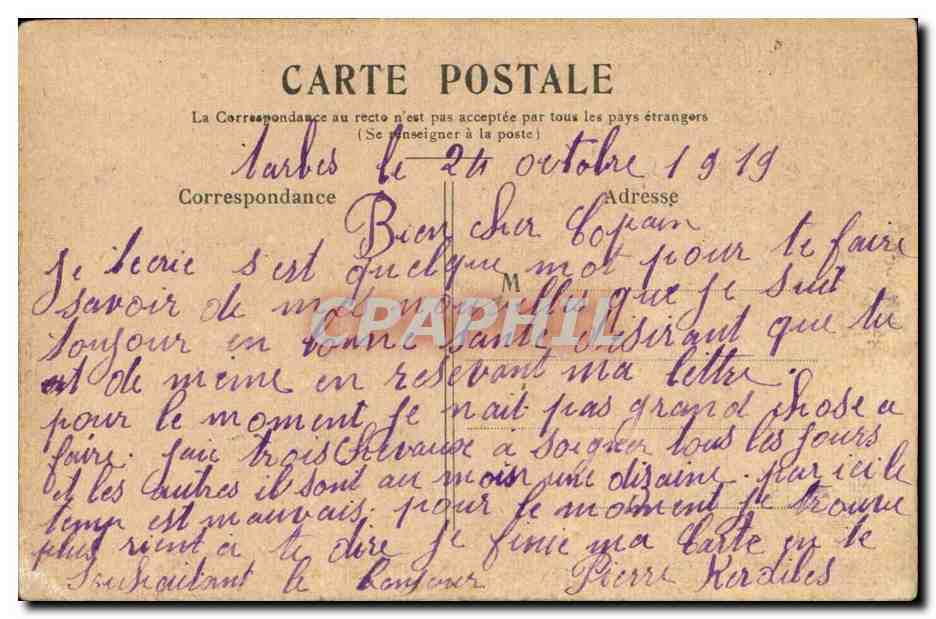 CARTE POSTALE
La Correspondance au recto n'est pas acceptée par tous les pays étrangers
(Se renseigner à la poste)
tarbes le 24 octobre 1919
Correspondance
Adresse
Bien Cher Copain
M
Je tecrie s'est quelque mot pour te faire
savoir de mes nouvelles que je suit
toujour en bonne santé désirant que tu
et de meme en resevant ma lettre.
pour le moment je nait pas grand chose a
faire. jai trois chevaux a soigner tous les jours
et les autres il sont au moin une disaine. par ici le
temp est mauvais. pour le moment je trouve
plus rient a te dire je finie ma carte en te
souhaitant le bonjour Pierre
CPAPHIL